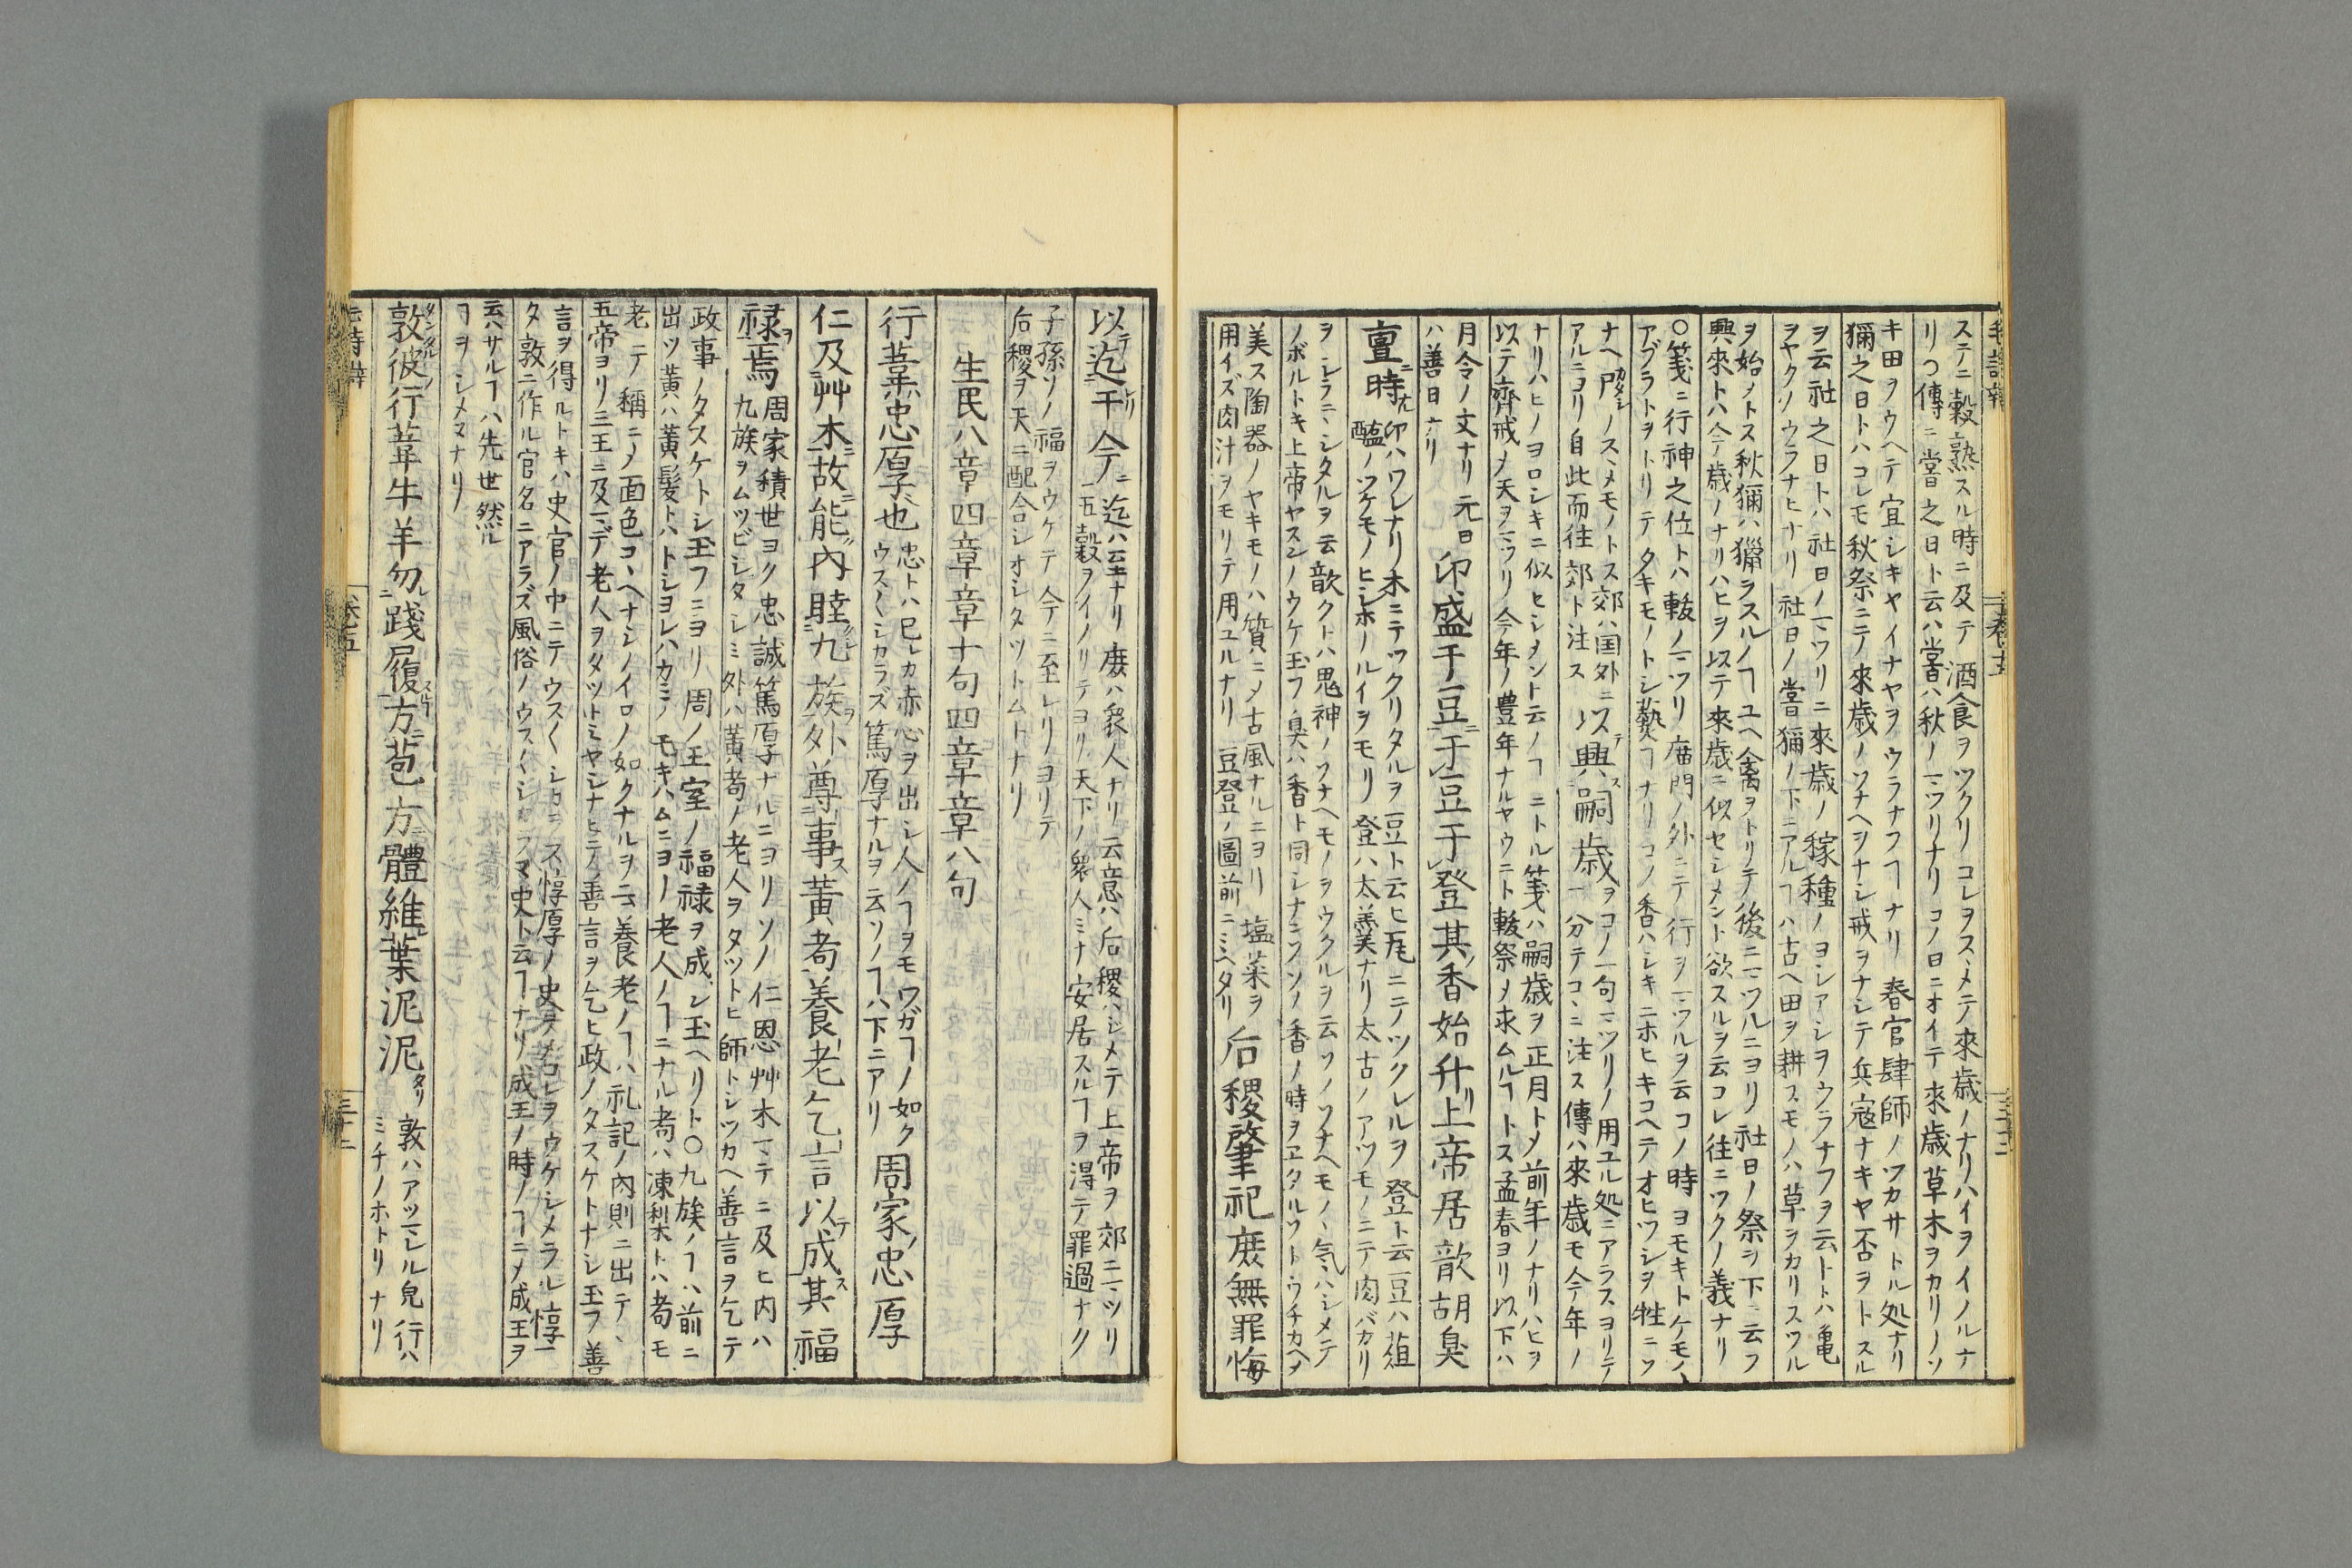 ステニ穀熟スル時ニ及テ酒食ヲツクリコレヲスヽメテ來歳ノナリハイヲイノルナ
リ○傳ニ嘗之日ト云ハ嘗ハ秋ノマツリナリコノ日ニオイテ來歳草木ヲカリノソ
キ田ヲウヘテ宜シキヤイナヤヲウラナフヿナリ春官肆師ノツカサトル処ナリ
獮之日トハコレモ秋祭ニテ來歳ノソナヘヲナシ戒ヲナシテ兵寇ナキヤ否ヲトスル
ヲ云社之日トハ社日ノマツリニ來歳ノ稼種ノヨシアシヲウラナフヲ云トハ亀
ヲヤクノウラナヒナリ社日ノ嘗獮ノ下ニアルヿハ古ヘ田ヲ耕スモノハ草ヲカリスツル
ヲ始ノトス秋獮ハ獵ヲスルノヿユヘ禽ヲトリテ後ニマツルニヨリ社日ノ祭ヲ下ニ云フ
興來トハ今歳ノナリハヒヲ以テ來歳ニ似セシメント欲スルヲ云コレ往ニツクノ義ナリ
○箋ニ行神之位トハ軷ノマツリ廟門ノ外ニテ行ヲマツルヲ云コノ時ヨモキトケモノヽ
アブラトヲトリテタキモノトシ爇ヿナリコノ香ハシキニホヒキコヘテオヒツシヲ牲ニソ
ナヘ尸ノスヽメモノトス郊ハ国外ニ以興嗣歳ヲコノ一句マツリノ用ユル処ニアラスヨリテ
アルニヨリ自此而往郊ト注ス一分テコヽニ注ス傳ハ來歳モ今年ノ
ナリハヒノヨロシキニ似ヒシメント云ノヿニトル箋ハ嗣歳ヲ正月トメ前年ノナリハヒヲ
以テ齊戒メ天ヲマツリ今年ノ豊年ナルヤウニト軷祭メ求ムルヿトス孟春ヨリ以下ハ
月令ノ文ナリ元日
ハ善日ナリ
卬盛于豆于豆于登其香始升上帝居歆胡臭
亶時卬ハワレナリ木ニテツクリタルヲ豆ト云ヒ瓦ニテツクレルヲ登ト云豆ハ葅
醢ノツケモノヒシホノルイヲモリ登ハ太羹ナリ太古ノアツモノニテ肉バカリ
ヲシラニヽシタルヲ云歆クトハ鬼神ノソナヘモノヲウクルヲ云ソノソナヘモノヽ気ハシメテ
ノボルトキ上帝ヤスンノウケ玉フ臭ハ香ト同シナニソソノ香ノ時ヲヱタルソトウチカヘメ
美ス陶器ノヤキモノハ質ニメ古風ナルニヨリ塩菜ヲ
用イズ肉汁ヲモリテ用ユルナリ豆登ノ圖前ニミヘタリ
后稷肇祀庶無罪悔
以迄于今迄ハ至ナリ庶ハ衆人ナリ云意ハ后稷ハシメテ上帝ヲ郊ニマツリ
五穀ヲイノリテヨリ天下ノ衆人ミナ安居スルヿヲ得テ罪過ナク
子孫ソノ福ヲウケテ今ニ至レリヨリテ
后稷ヲ天ニ配合シオシタツトムトナリ
生民八章四章章十句四章章八句
行葦忠厚也忠トハ己レカ赤心ヲ出シ人ノヿヲモワガヿノ如ク
ウス〱シカラズ篤厚ナルヲ云ソノヿハ下ニアリ
周家忠厚
仁及艸木故能內睦九族外尊事黃耇養老乞言以成其福
禄焉周家積世ヨク忠誠篤厚ナルニヨリソノ仁恩艸木マテニ及ヒ内ハ
九族ヲムツビシタシミ外ハ黃耇ノ老人ヲタツトヒ師トシツカヘ善言ヲ乞テ
政事ノタスケトシ玉フニヨリ周ノ王室ノ福禄ヲ成シ玉ヘリト○九族ノヿハ前ニ
出ツ黃ハ黃髮トハトシヨレハカミノモキハムニヨー老人ノヿニナル耇ハ凍梨トハ耇モ
老テ稱ニメ面色コヽヘナシノイロノ如クナルヲ云養老ノヿハ礼記ノ內則ニ出テヽ
五帝ヨリ三王ニ及マデ老人ヲタツトミヤシナヒテ善言ヲ乞ヒ政ノタスケトナシ玉フ善
言ヲ得ルトキハ史官ノ中ニテウス〱シカラス惇厚ノ史コレヲウケシメラル惇一
タ敦ニ作ル官名ニアラズ風俗ノウス〱シカラヌ史ト云ヿナリ成王ノ時ノヿニメ成王ヲ
云ハサルヿハ先世然ル
ヿヲシメスナリ
敦彼行葦牛羊勿踐履方苞方體維葉泥泥敦ハアツマレル皃行ハ
ミチノホトリナリ
毛詩辨
卷五